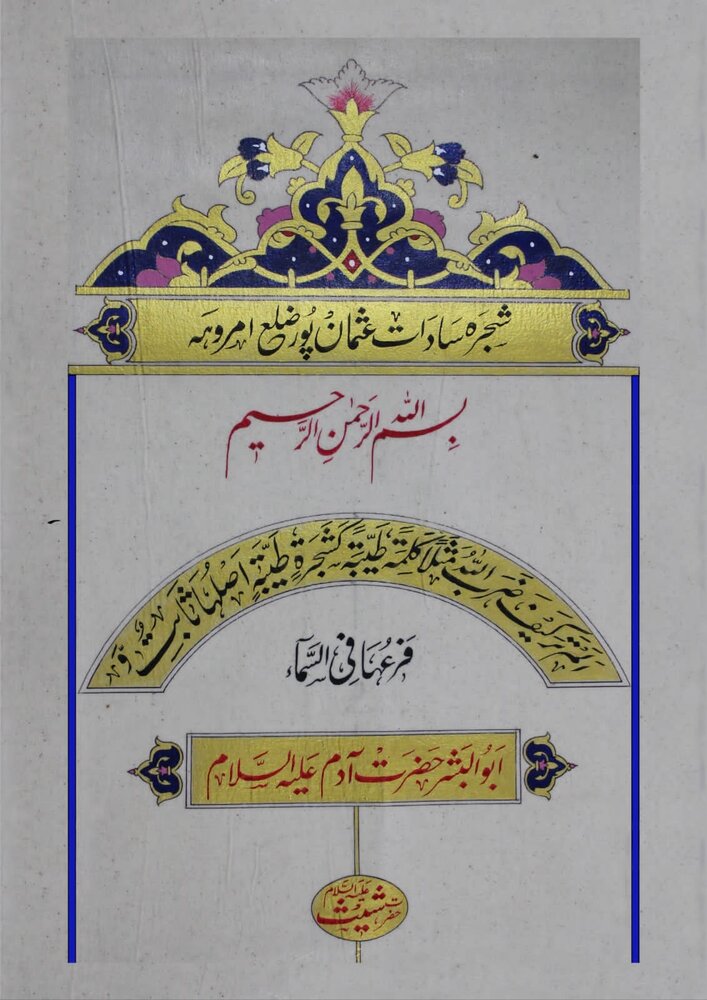 شجرہ سادات عثمان پور ضلع امروہہ
بِسم اللہ الرّحمٰنِ الرّحیم
الم تر کیف ضرب اللہ مثلاً کلمۃ طیّبۃ کشجرۃٍ طیّبۃٍ اصلہا ثابتٌ وّ
فرعہا فی السّمآء
ابو البشر حضرت آدم علیہ السلام
حضرت شیثؑ علیہ السّلام